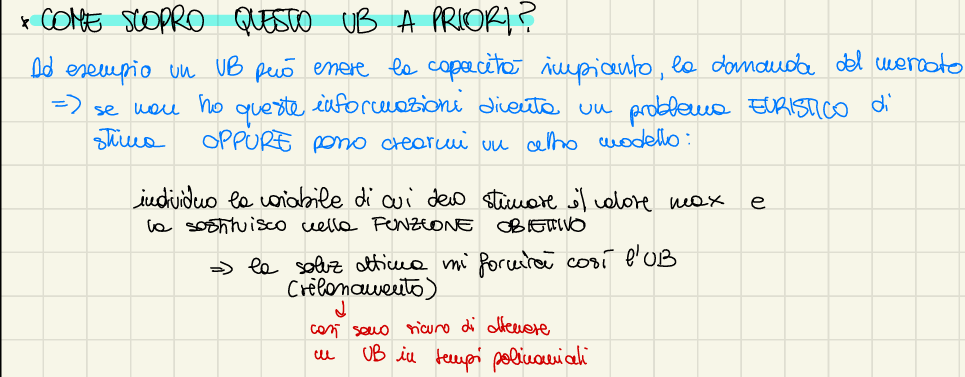 * COME SCOPRO QUESTO UB A PRIORI?
Ad esempio un UB può essere la capacità impianto, la domanda del mercato
=> se non ho queste informazioni diventa un problema EURISTICO di
stima OPPURE posso crearmi un altro modello:
individuo la variabile di cui devo stimare il valore max e
la sostituisco nella FUNZIONE OBIETTIVO
=> la soluz ottima mi fornirà così l'UB
(rilassamento)
↓
così sono sicuro di ottenere
un UB in tempi polinomiali